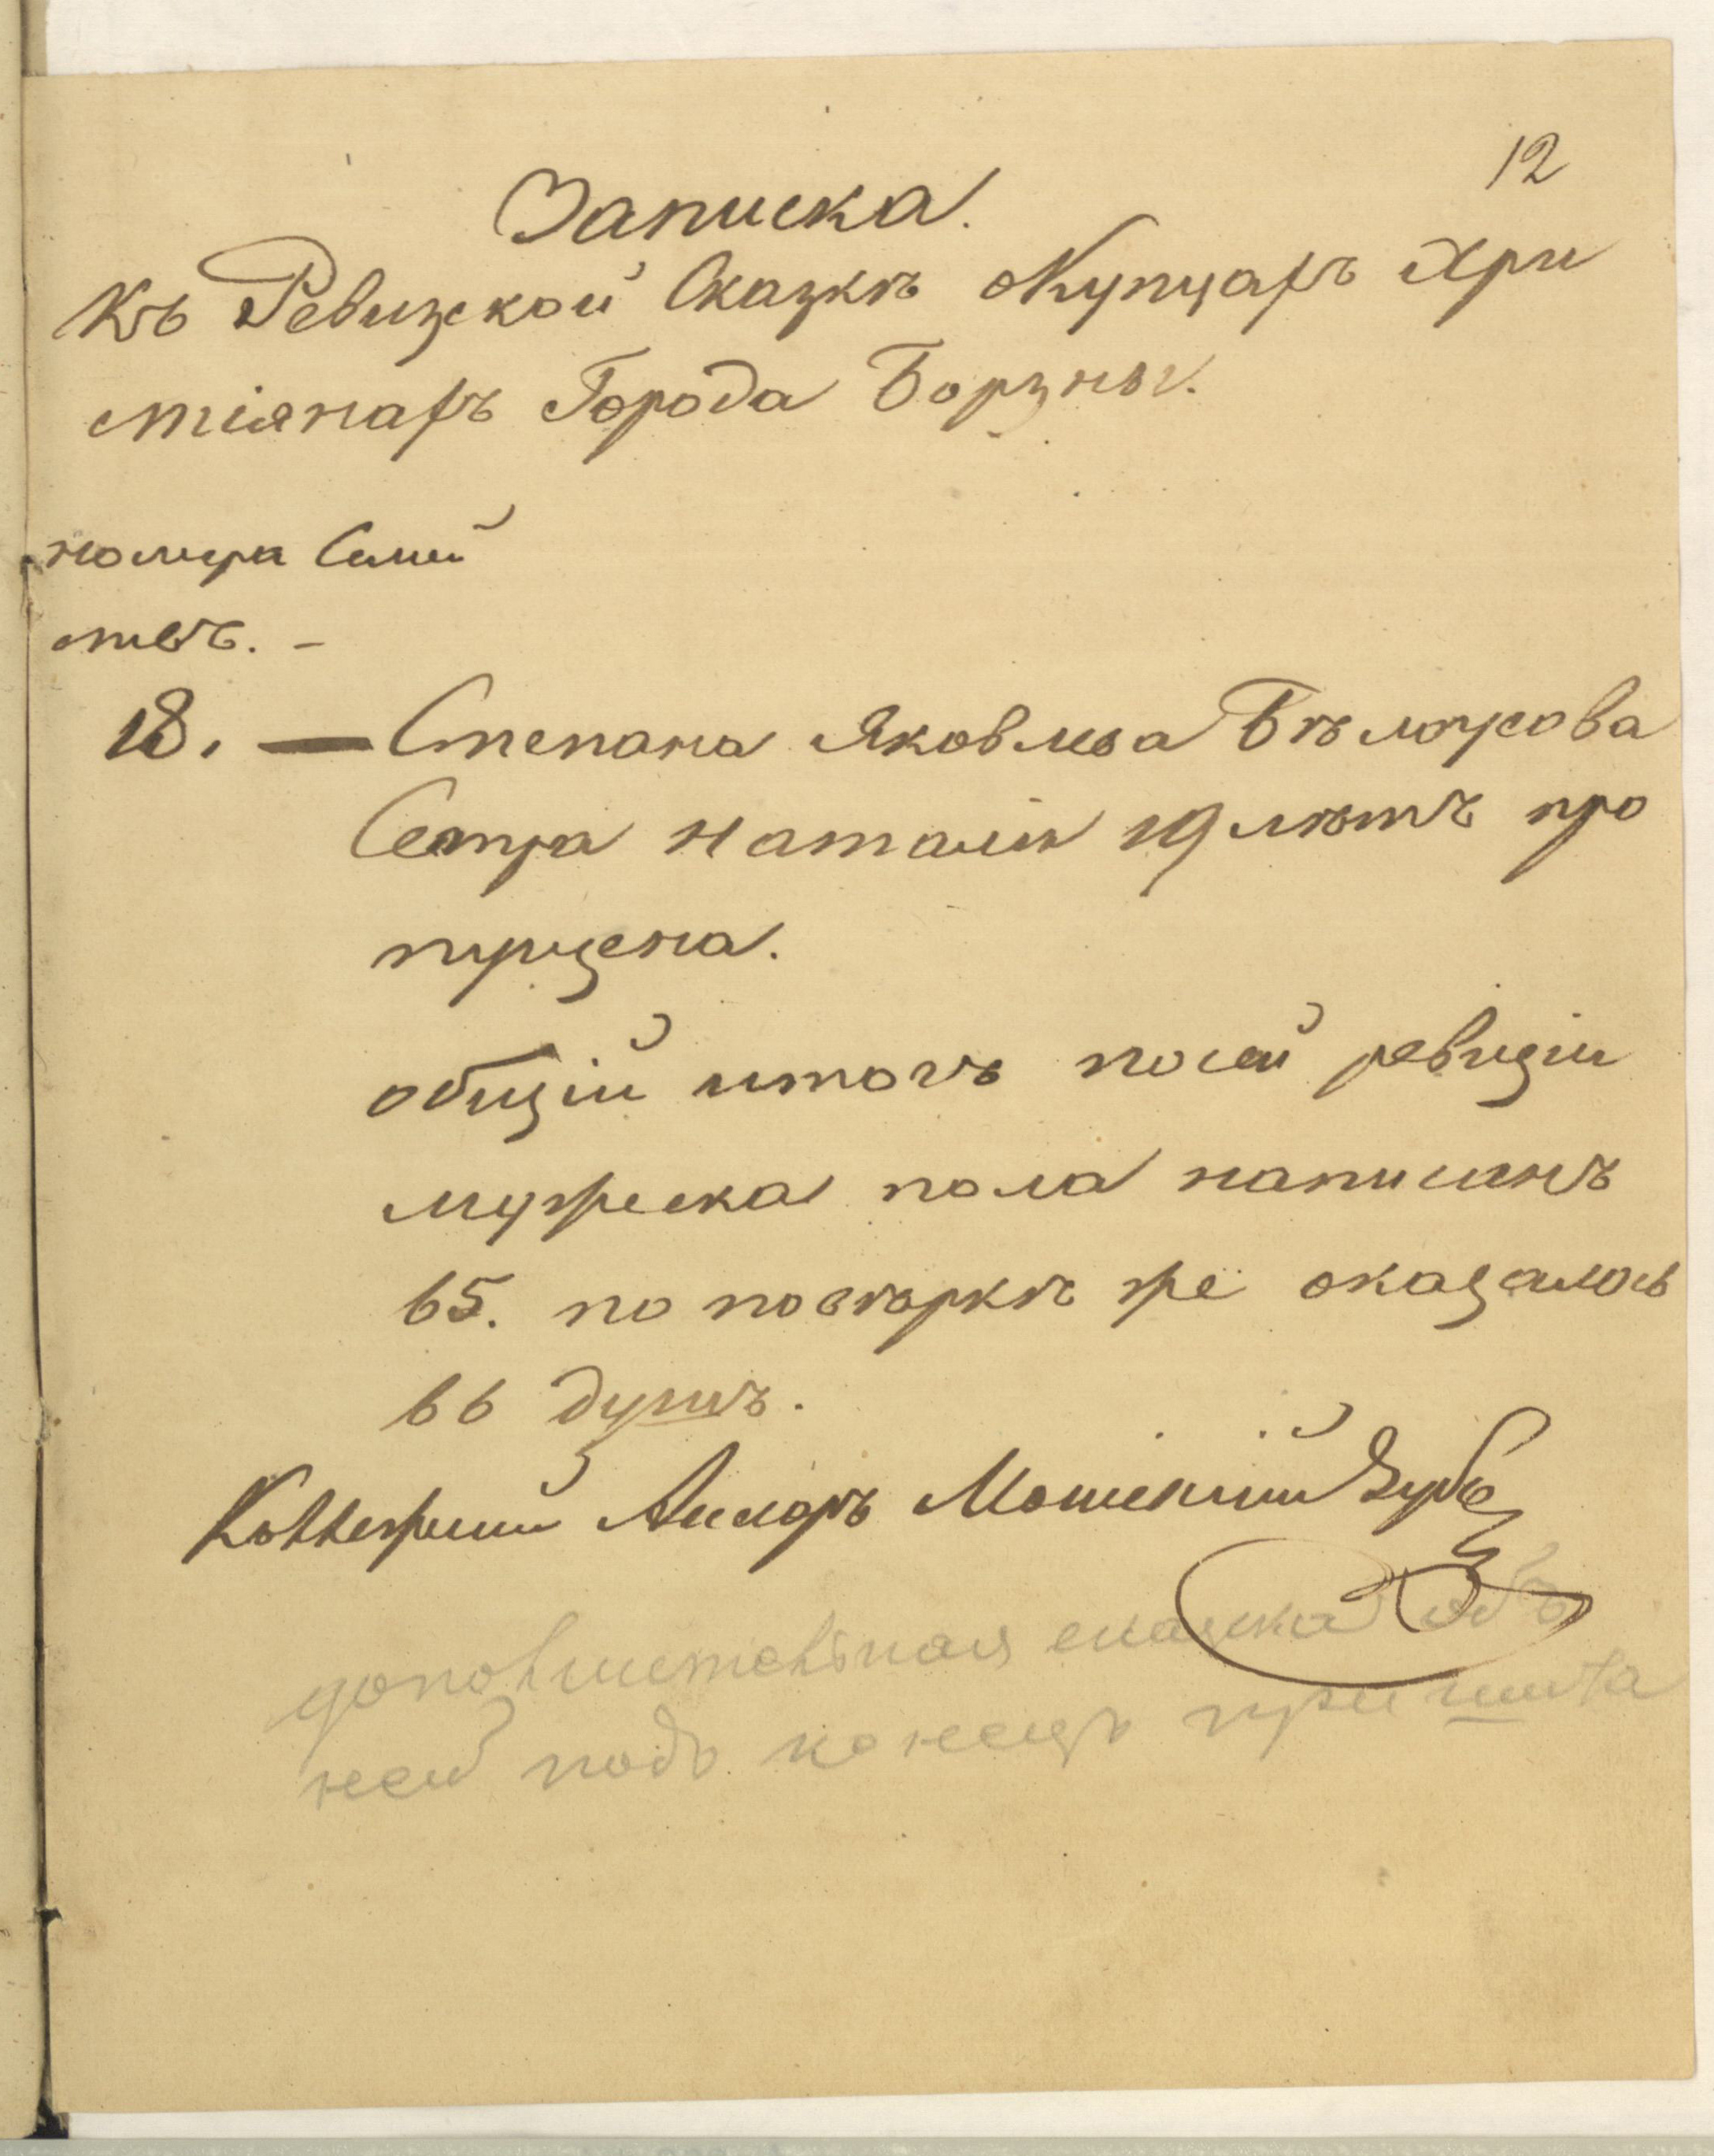 12
Записка.
Къ Ревизской Сказкѣ О Купцахъ Хри
стіянахъ Города Борзны.
номера Семей
ствъ. –
18. — Степана Яковлева Бѣлоусова
Сестра Наталія 19 лѣтъ про
пущена.
общій итогъ посей ревизіи
мужеска пола написанъ
65. по повѣркѣ же оказалось
66 душъ.
Коллежскій
дополнительная сказка объ
ней подъ конецъ пришита